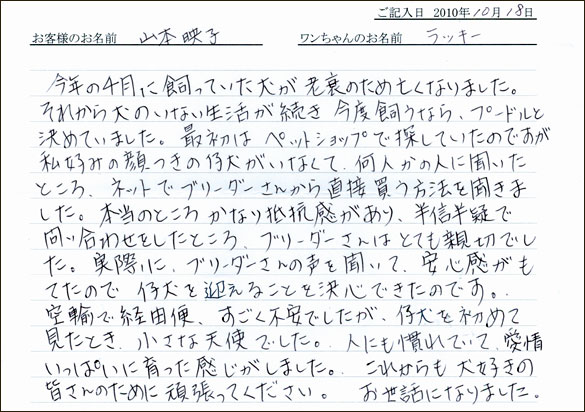 ご記入日 2010年10月18日
お客様のお名前 山本映子 ワンちゃんのお名前 ラッキー
今年の4月に飼っていた犬が老衰のため亡くなりました。
それから犬のいない生活が続き今度飼うなら、プードルと
決めていました。最初はペットショップで探していたのですが
私好みの顔つきの仔犬がいなくて、何人かの人に聞いた
ところ、ネットでブリーダーさんから直接買う方法を聞きま
した。本当のところかなり抵抗感があり、半信半疑で
問い合わせをしたところ、ブリーダーさんはとても親切でし
た。実際に、ブリーダーさんの声を聞いて、安心感がも
てたので仔犬を迎えることを決心できたのです。
空輸で経由便、すごく不安でしたが、仔犬を初めて
見たとき、小さな天使でした。人にも慣れていて、愛情
いっぱいに育った感じがしました。これからも犬好きの
皆さんのために頑張ってください。 お世話になりました。